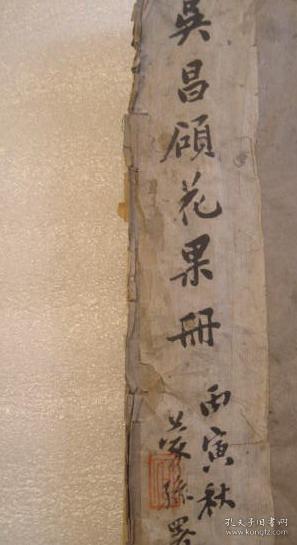 吳昌碩花果冊
丙寅秋
蒙孫署
孔夫子旧书网